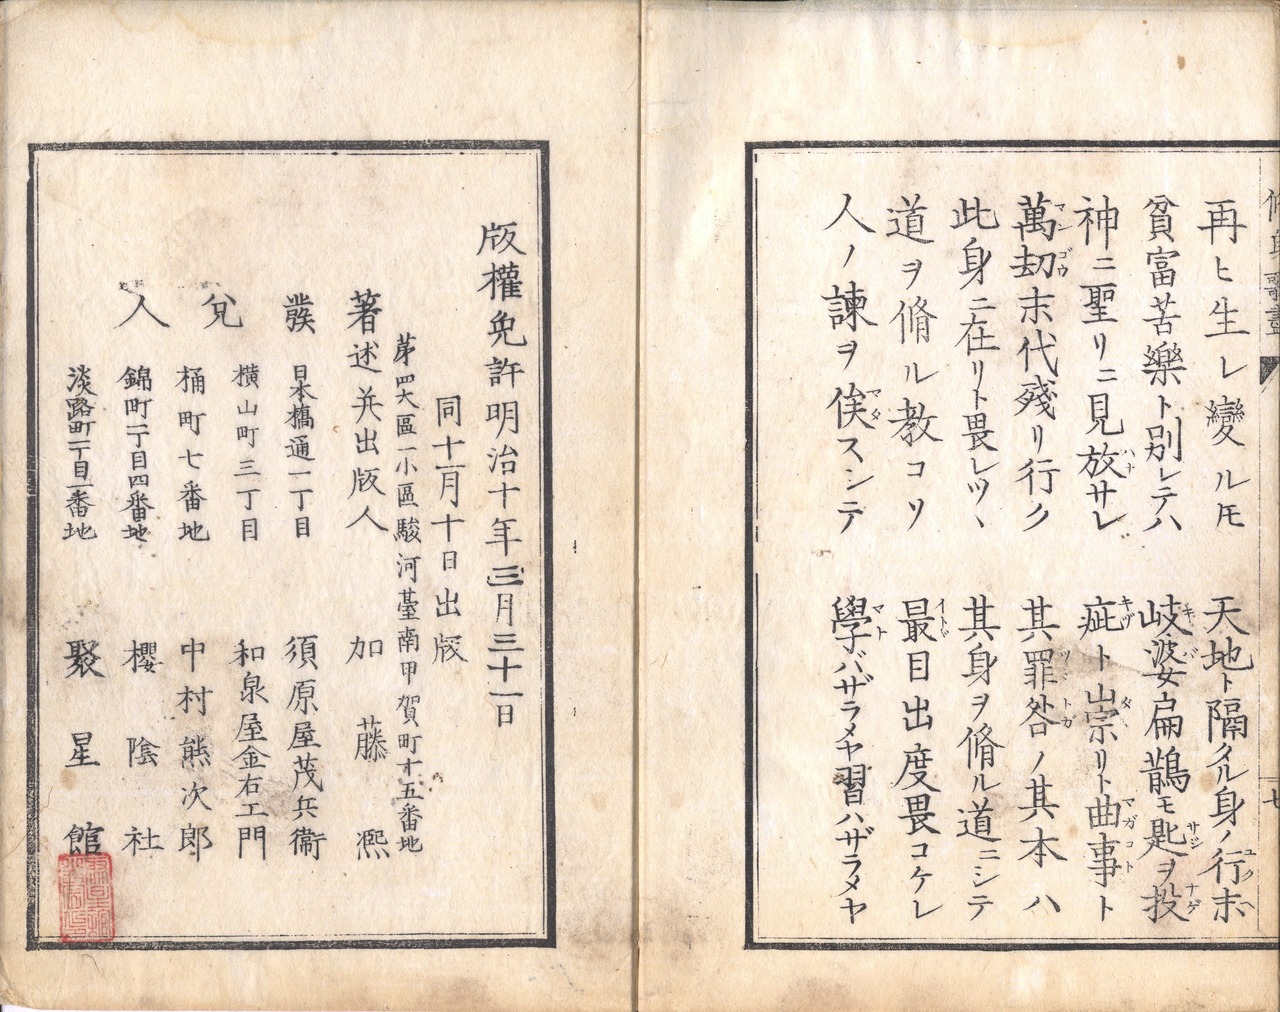 再ヒ生レ變ルモ 天地ト隔タル身ノ行末
貧富苦樂ト別レテハ 岐婆扁鵲モ匙ヲ投
神ニ聖リニ見放サレ 疵ト崇リト曲事ト
萬劫末代殘リ行ク 其罪咎ノ其本ハ
此身ニ在リト畏レツヽ 其身ヲ脩ル道ニシテ
道ヲ脩ル教コソ 最目出度畏コケレ
人ノ諫ヲ俟スシテ 學バザラメヤ習ハザラメヤ
七
版權免許明治十年三月三十一日
同十一月十日出版
第四大區一小區駿河臺南甲賀町十五番地
著述并出版人 加藤熈
發兌人
日本橋通一丁目 須原屋茂兵衞
横山町三丁目 和泉屋金右エ門
桶町七番地 中村熊次郎
錦町一丁目四番地 櫻陰社
淡路町二丁目一番地 聚星館